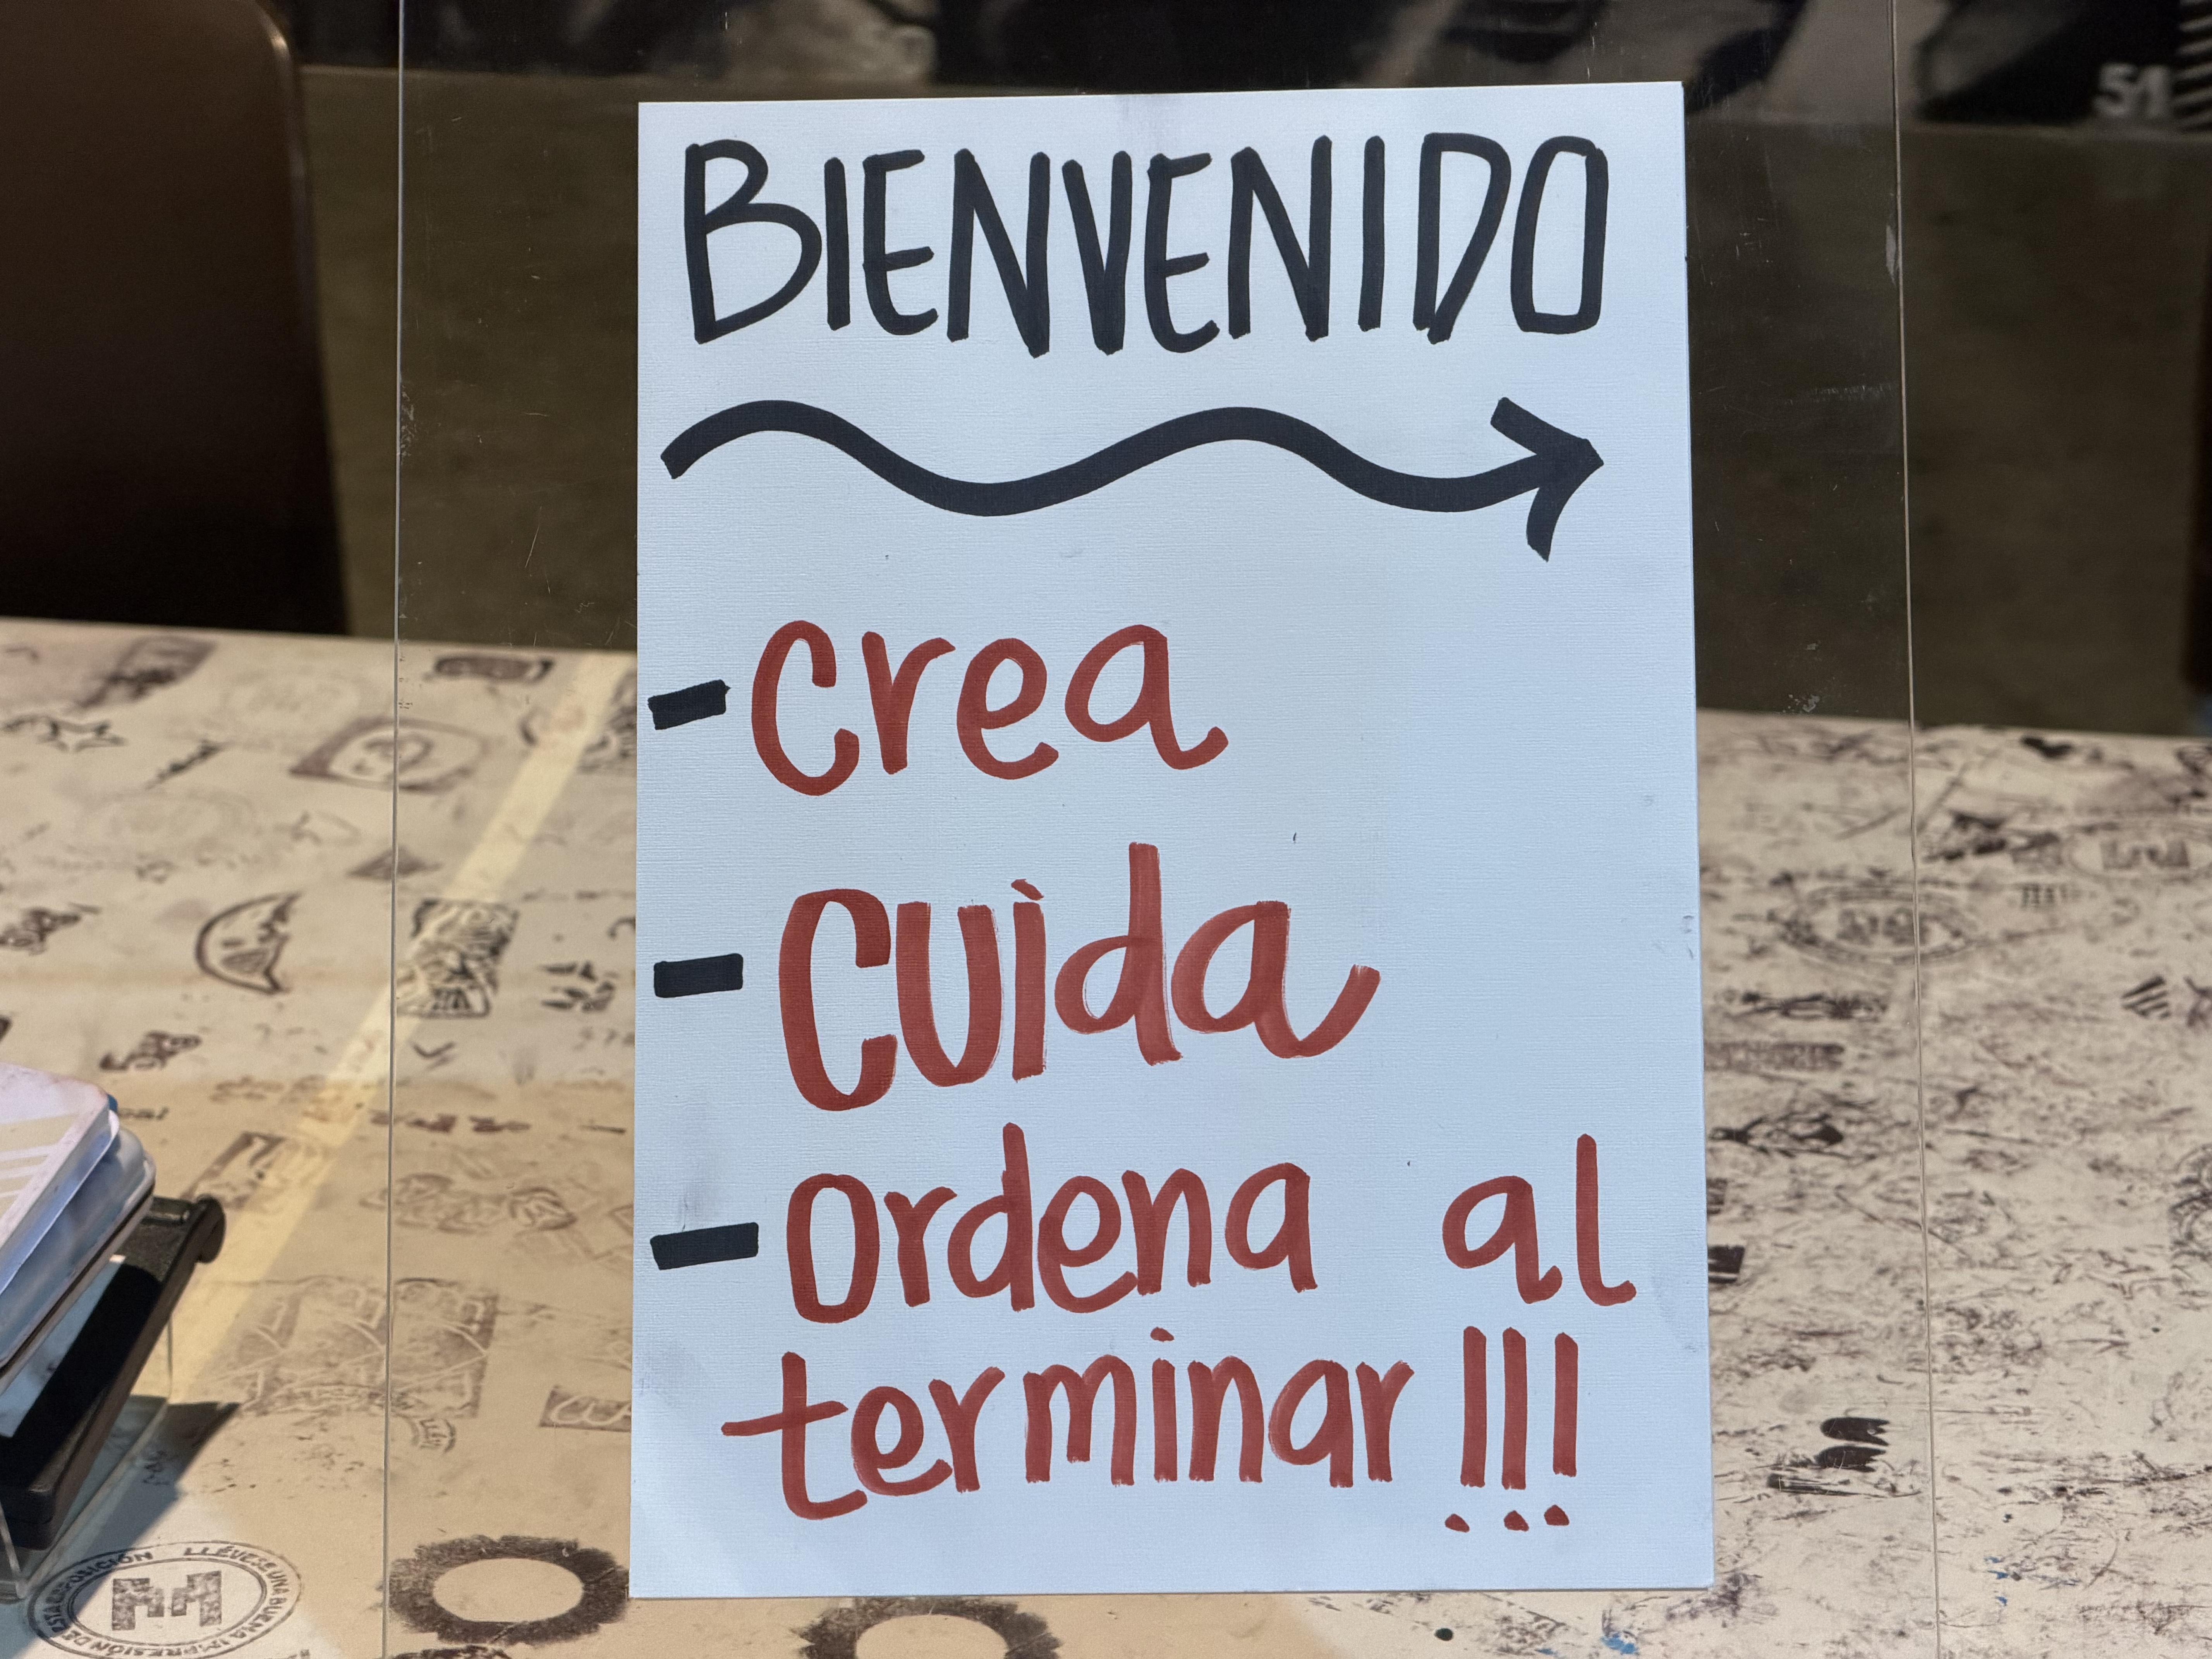 BIENVENIDO
- Crea
- Cuida
- Ordena al
terminar!!!
51
ESTA EXPOSICIÓN LLÉVESE UNA BUENA IMPRESIÓN DE